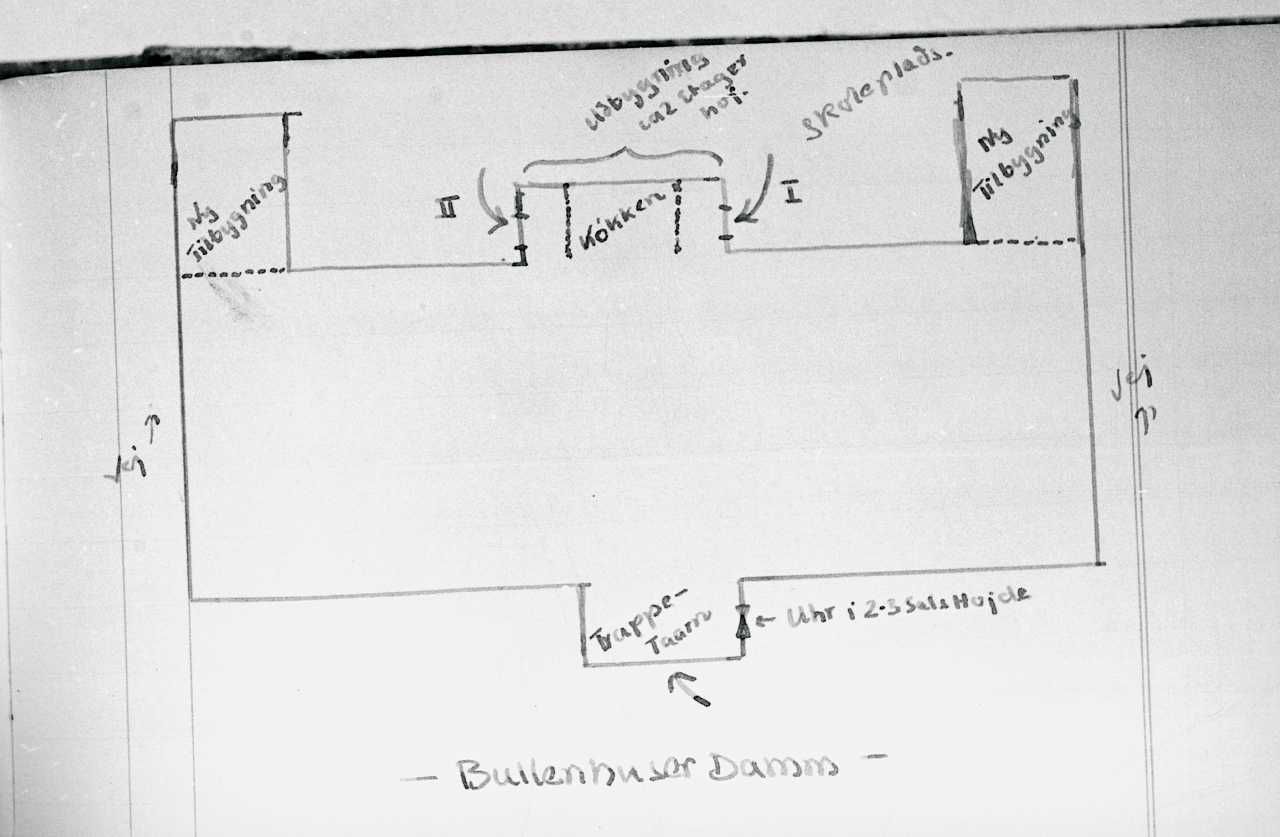 Udbygning
ca 2 Etager
høj.
Skoleplads.
Ny
Tilbygning
Ny
Tilbygning
II
Køkken
I
Vej
Vej
Trappe-
Taarn
← Uhr i 2-3 Sals Højde
— Bullenhuser Damm —